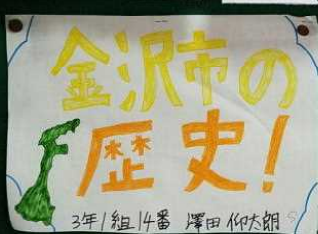 金沢市の
歴史!
3年1組14番 澤田 仰太朗